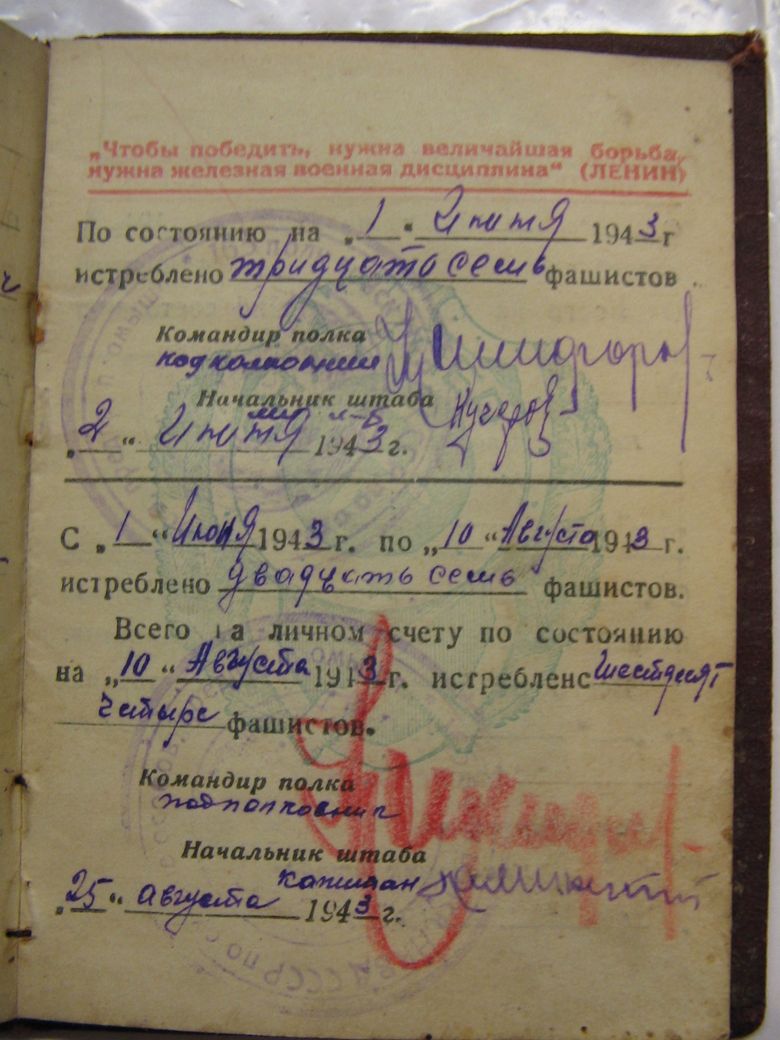 „Чтобы победить, нужна величайшая борьба,
нужна железная военная дисциплина“ (ЛЕНИН)
По состоянию на „1“ Июня 1943 г
истреблено тридцать семь фашистов
Командир полка
подполковник
Начальник штаба
Кучеров
„2“ Июня 1943 г.
С „1“ Июня 1943 г. по „10“ Августа 1943 г.
истреблено двадцать семь фашистов.
Всего на личном счету по состоянию
на „10“ Августа 1943 г. истреблено шестдесят
четыре фашистов.
Командир полка
подполковник
Начальник штаба
капитан
„25“ августа 1943 г.